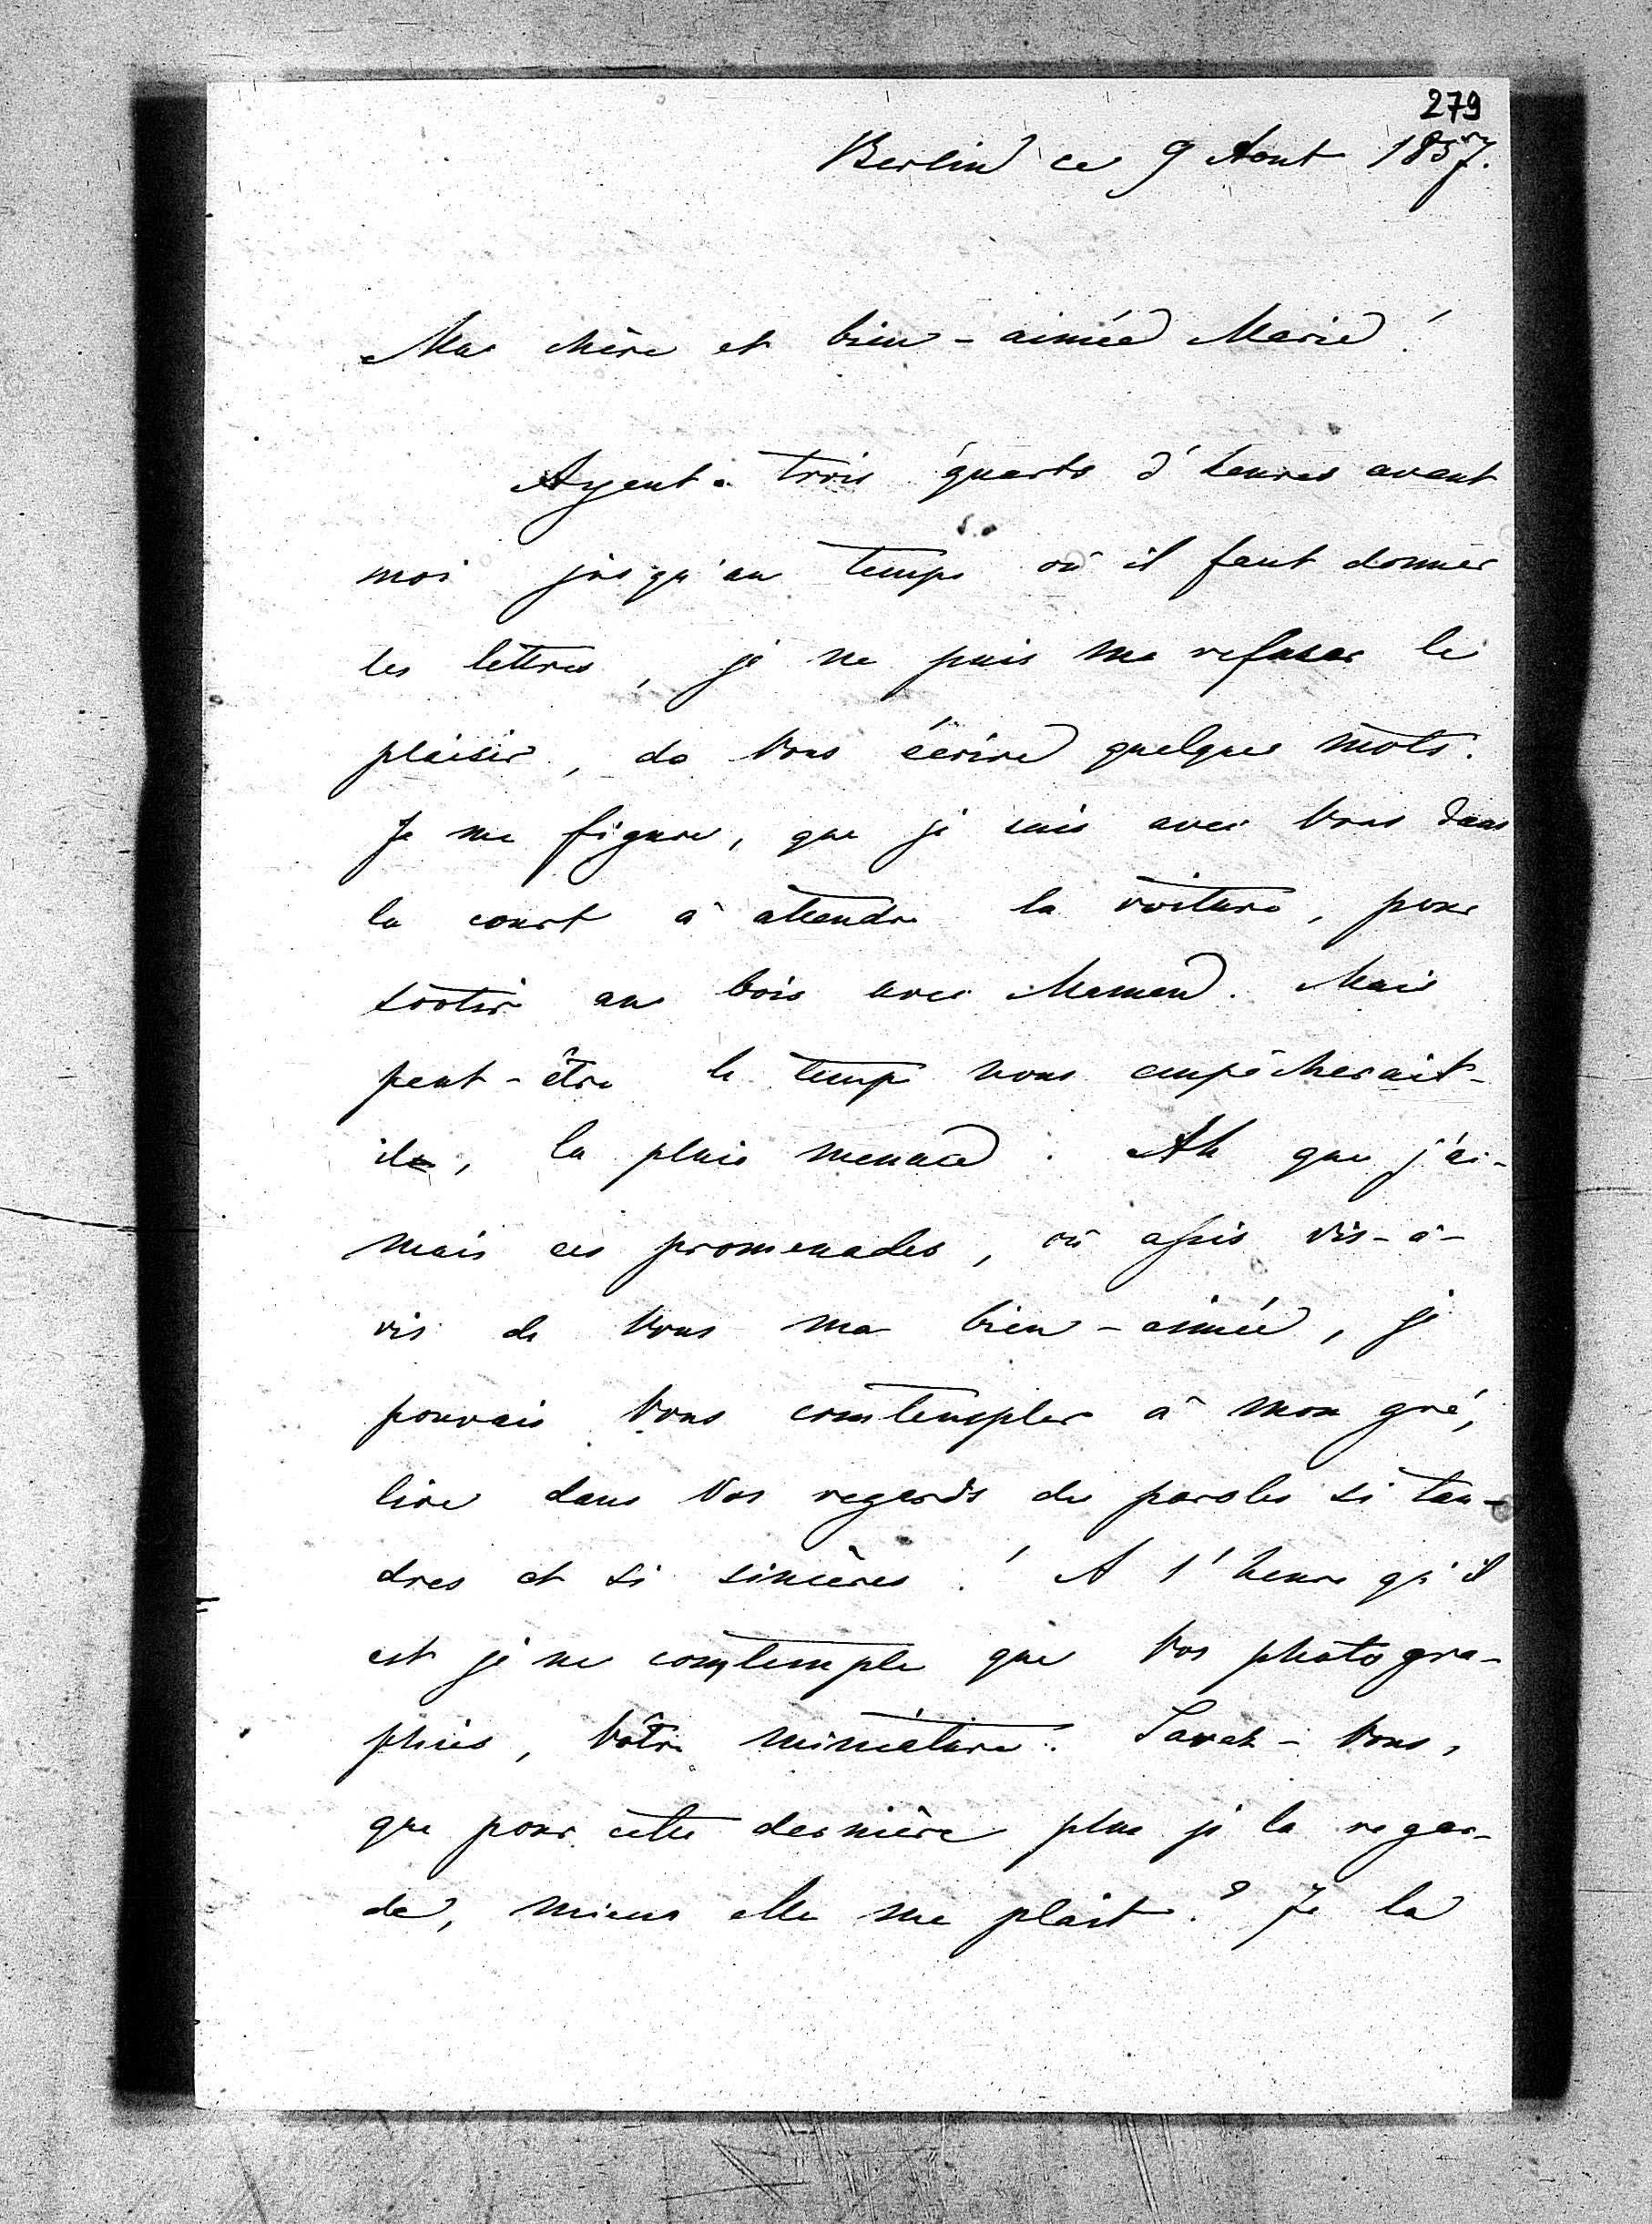 279
Berlin ce 9 Aout 1857.
Ma chère et bien-aimée Marie!
Ayent trois quarts d'heures avant
moi jusqu'au temps où il faut donner
les lettres, je ne puis me refuser le
plaisir, de Vous écrire quelques mots.
Je me figure, que je suis avec Vous dans
la court à attendre la voiture, pour
sortir au bois avec Maman. Mais
peut-être le temps nous empêcherait-
il, la pluie menace. Ah que j'ai-
mais ces promenades, où assis vis-à-
vis de Vous ma bien-aimée, je
pouvais Vous comtempler à mon gré,
lire dans Vos regards des paroles si tan-
dres et si sincères! A l'heure qu'il
est je ne comtemple que Vos photogra-
phies, Vôtre miniature. Savez-Vous,
que pour cette dernière plus je la regar-
de, mieux elle me plait? Je la